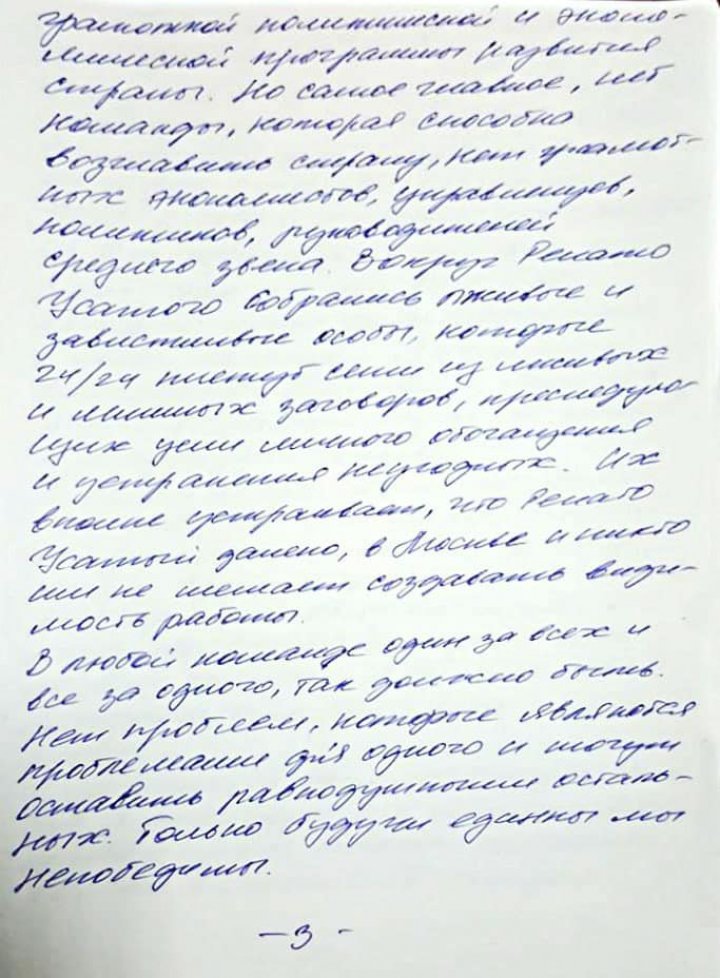 грамотной политической и эконо-
мической программы развития
страны. Но самое главное, нет
команды, которая способна
возглавить страну, нет грамот-
ных экономистов, управленцев,
политиков, руководителей
среднего звена. Вокруг Ренато
Усатого собрались лживые и
завистливые особы, которые
24/24 плетут сети из лживых
и мнимых заговоров, преследую-
щих цели личного обогащения
и устранения неугодных. Их
вполне устраивает, что Ренато
Усатый далеко, в Москве и никто
им не мешает создавать види-
мость работы.
В любой команде один за всех и
все за одного, так должно быть.
Нет проблем, которые являются
проблемами для одного и могут
оставить равнодушными осталь-
ных. Только будучи едины мы
непобедимы.
- 3 -